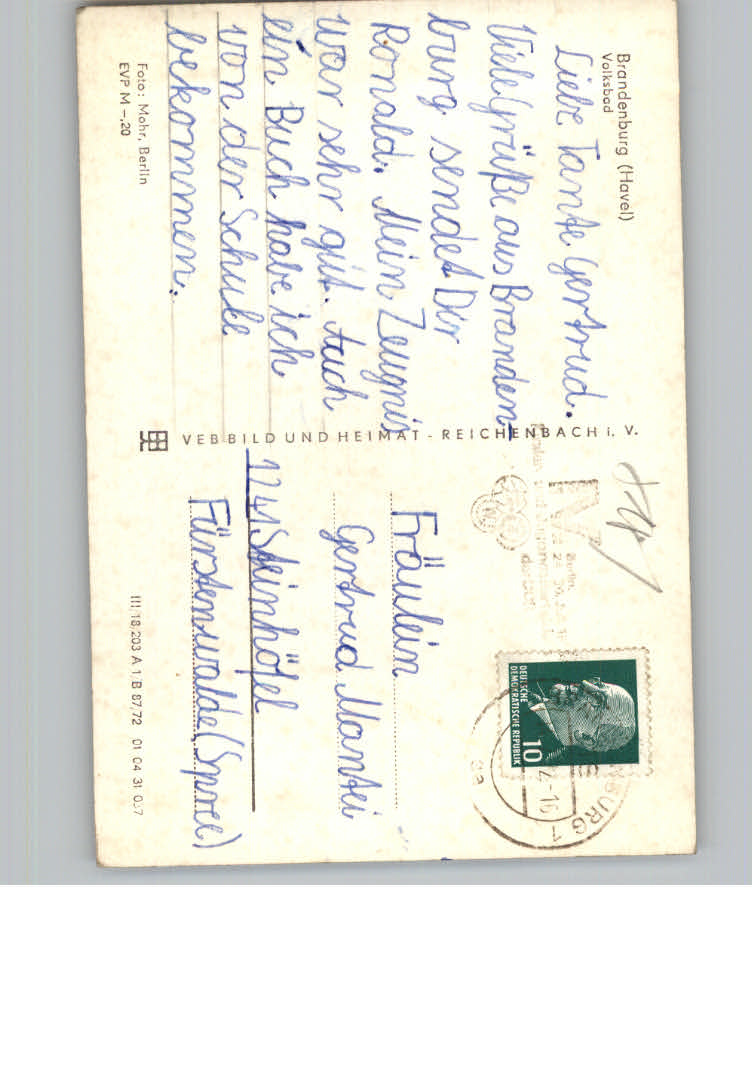 Brandenburg (Havel)
Volksbad
Liebe Tante Gertrud.
Viele Grüße aus Branden-
burg sendet Dir
Ronald. Mein Zeugnis
war sehr gut. Auch
ein Buch habe ich
von der Schule
bekommen.
Foto: Mohr, Berlin
EVP M –,20
VEB BILD UND HEIMAT - REICHENBACH i. V.
Berlin,
DEUTSCHE
DEMOKRATISCHE REPUBLIK
10
BURG 1
Fräulein
Gertrud Mantei
1241 Steinhöfel
Fürstenwalde (Spree)
III/18/203 A 1/B 87/72 01 04 31 037